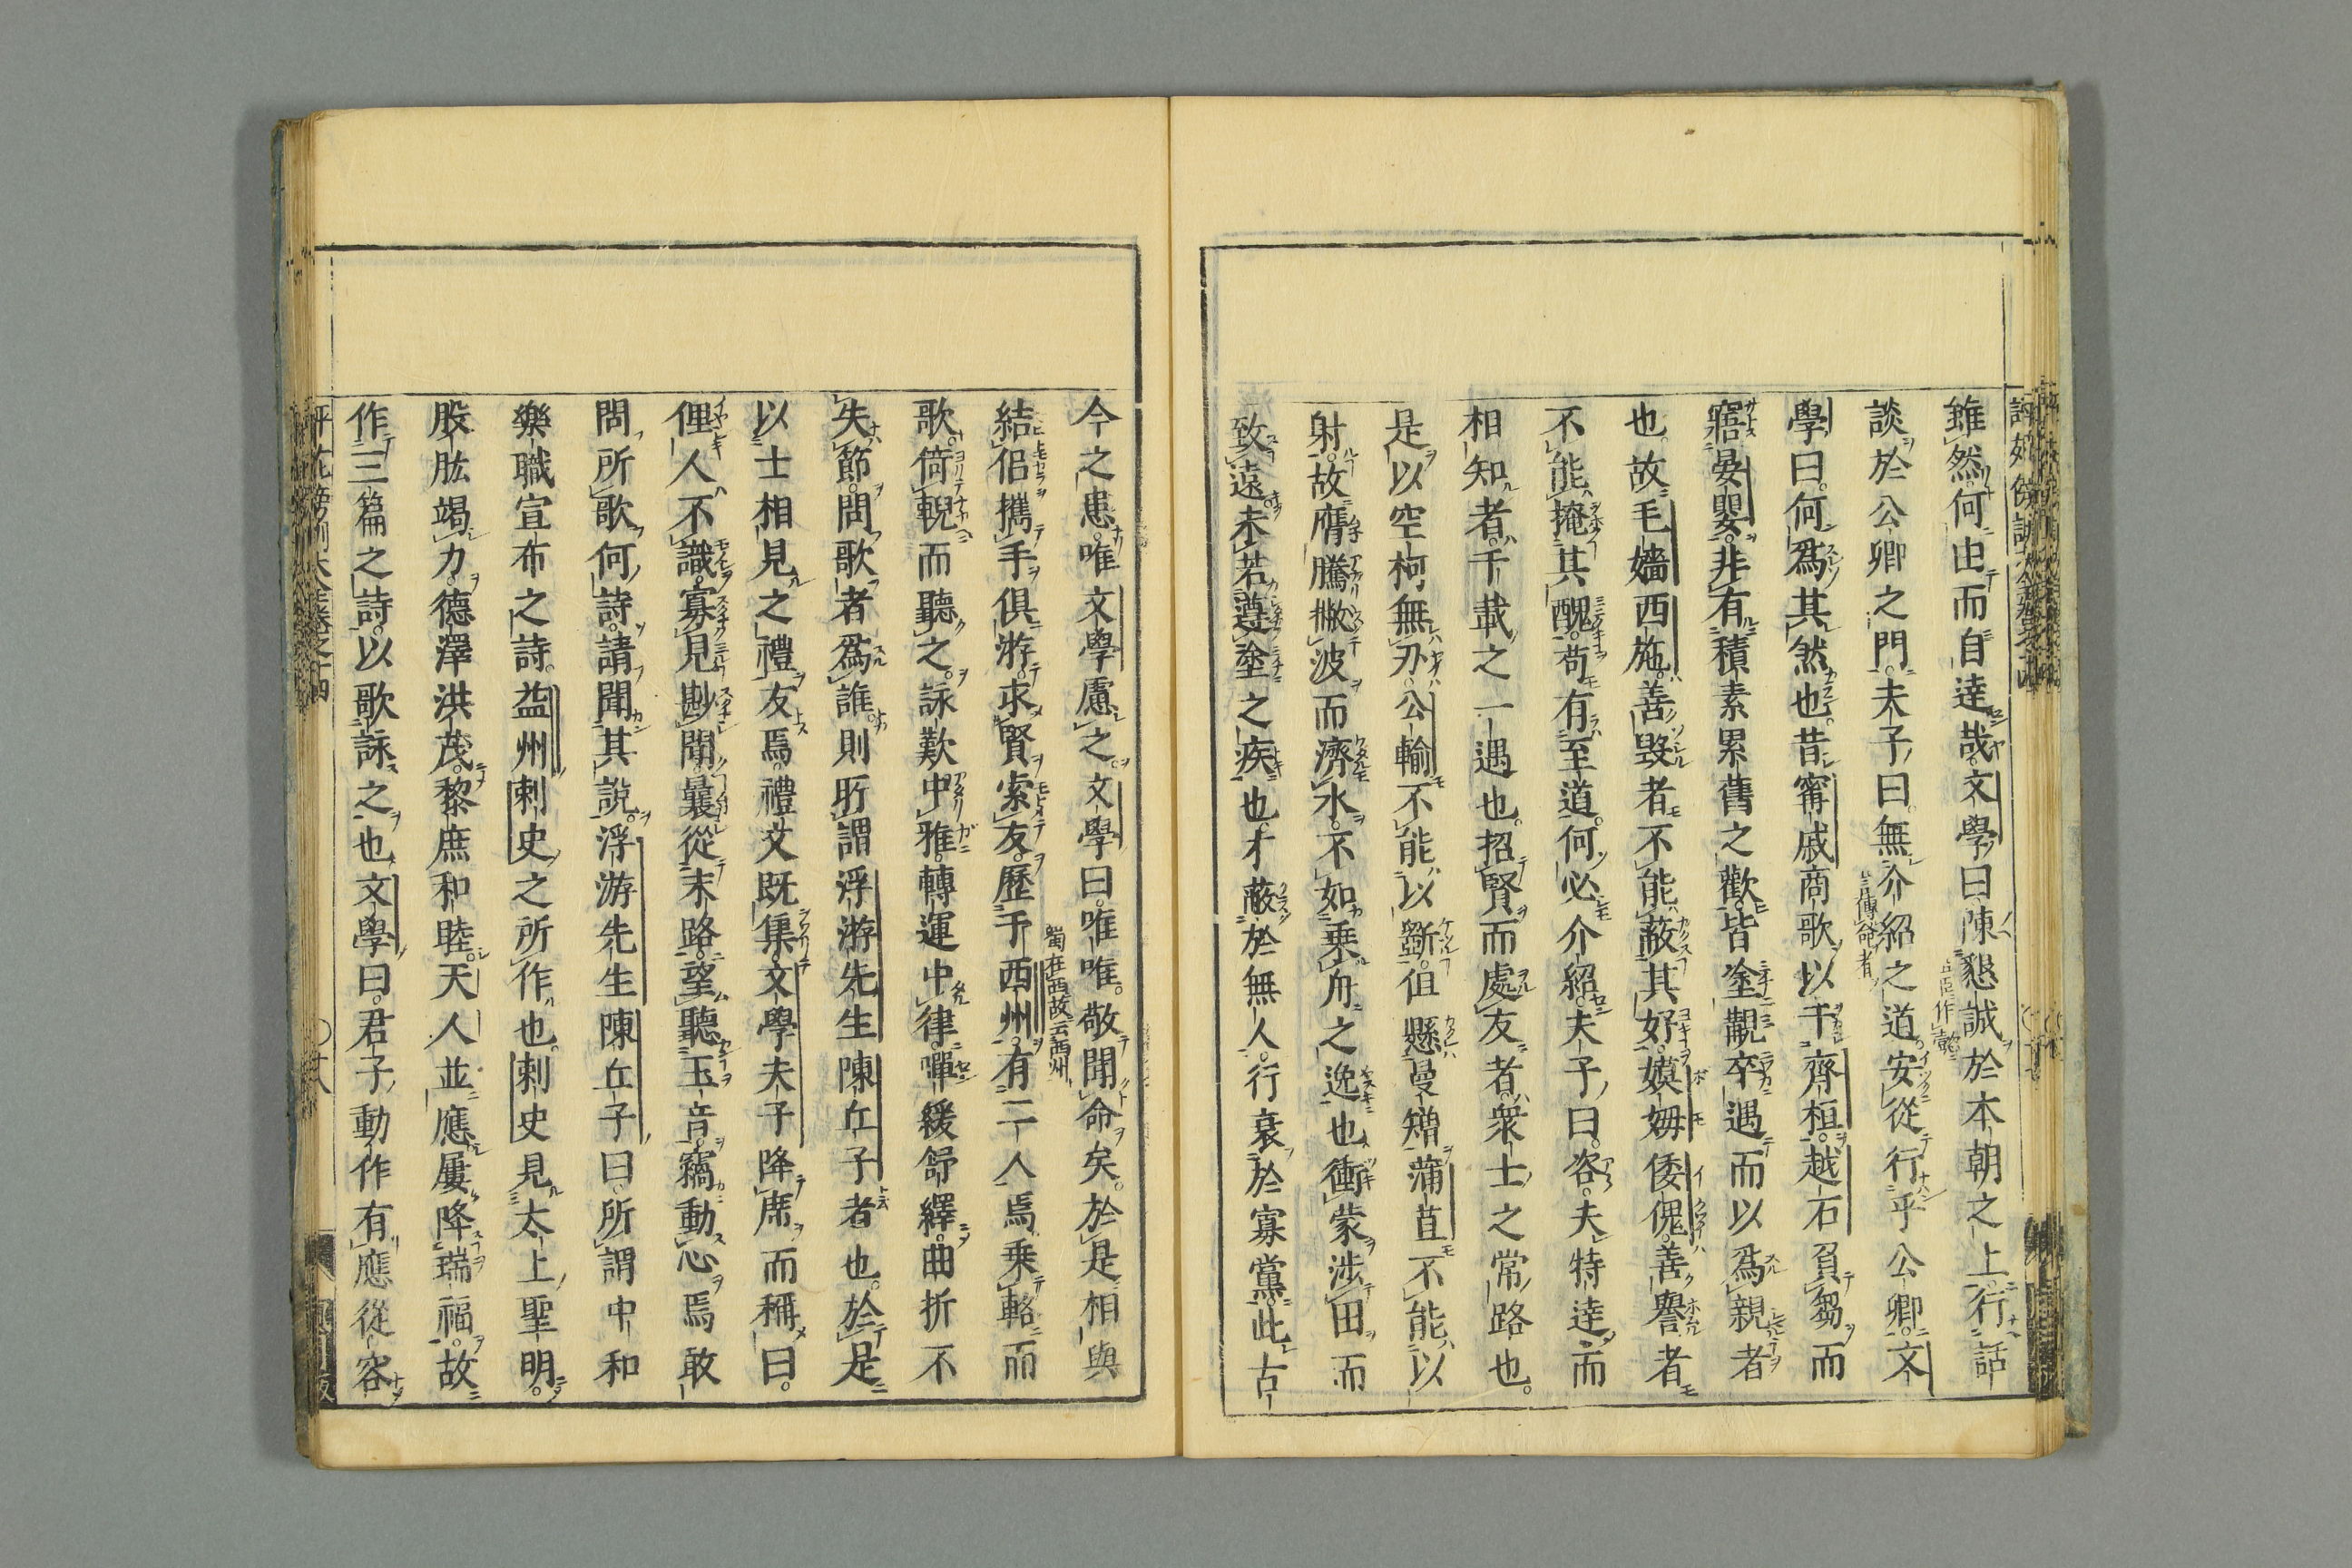 雖然何由而自達哉文學曰陳懇誠於本朝之上行話
談於公卿之門夫子曰無介紹之道安從行乎公卿文
言傳命者
學曰何爲其然也昔甯戚商歌以干齊桓越石負芻而
寤晏嬰非有積素累舊之歡皆塗覯卒遇而以爲親者
也故毛嬙西施善毀者不能蔽其好嫫姆倭傀善譽者
不能掩其醜苟有至道何必介紹夫子曰咨夫特達而
相知者千載之一遇也招賢而處友者衆士之常路也
是以空柯無刃公輸不能以斷但懸曼矰蒲苴不能以
射故膺騰撇波而濟水不如乗舟之逸也衝蒙涉田而
致遠未若遵塗之疾也才蔽於無人行衰於寡黨此古
今之患唯文學慮之文學曰唯唯敬聞命矣於是相與
結侶攜手俱游求賢索友歷于西州有二人焉乗輅而
蜀在西故云西州
歌倚輗而聽之詠歎中雅轉運中律嘽緩舒繹曲折不
失節問歌者爲誰則所謂浮游先生陳丘子者也於是
以士相見之禮友焉禮文既集文學夫子降席而稱曰
俚人不識寡見尠聞曩從末路望聽玉音竊動心焉敢
問所歌何詩請聞其說浮游先生陳丘子曰所謂中和
樂職宣布之詩益州刺史之所作也刺史見太上聖明
股肱竭力德澤洪茂黎庶和睦天人並應屢降瑞福故
作三篇之詩以歌詠之也文學曰君子動作有應從容